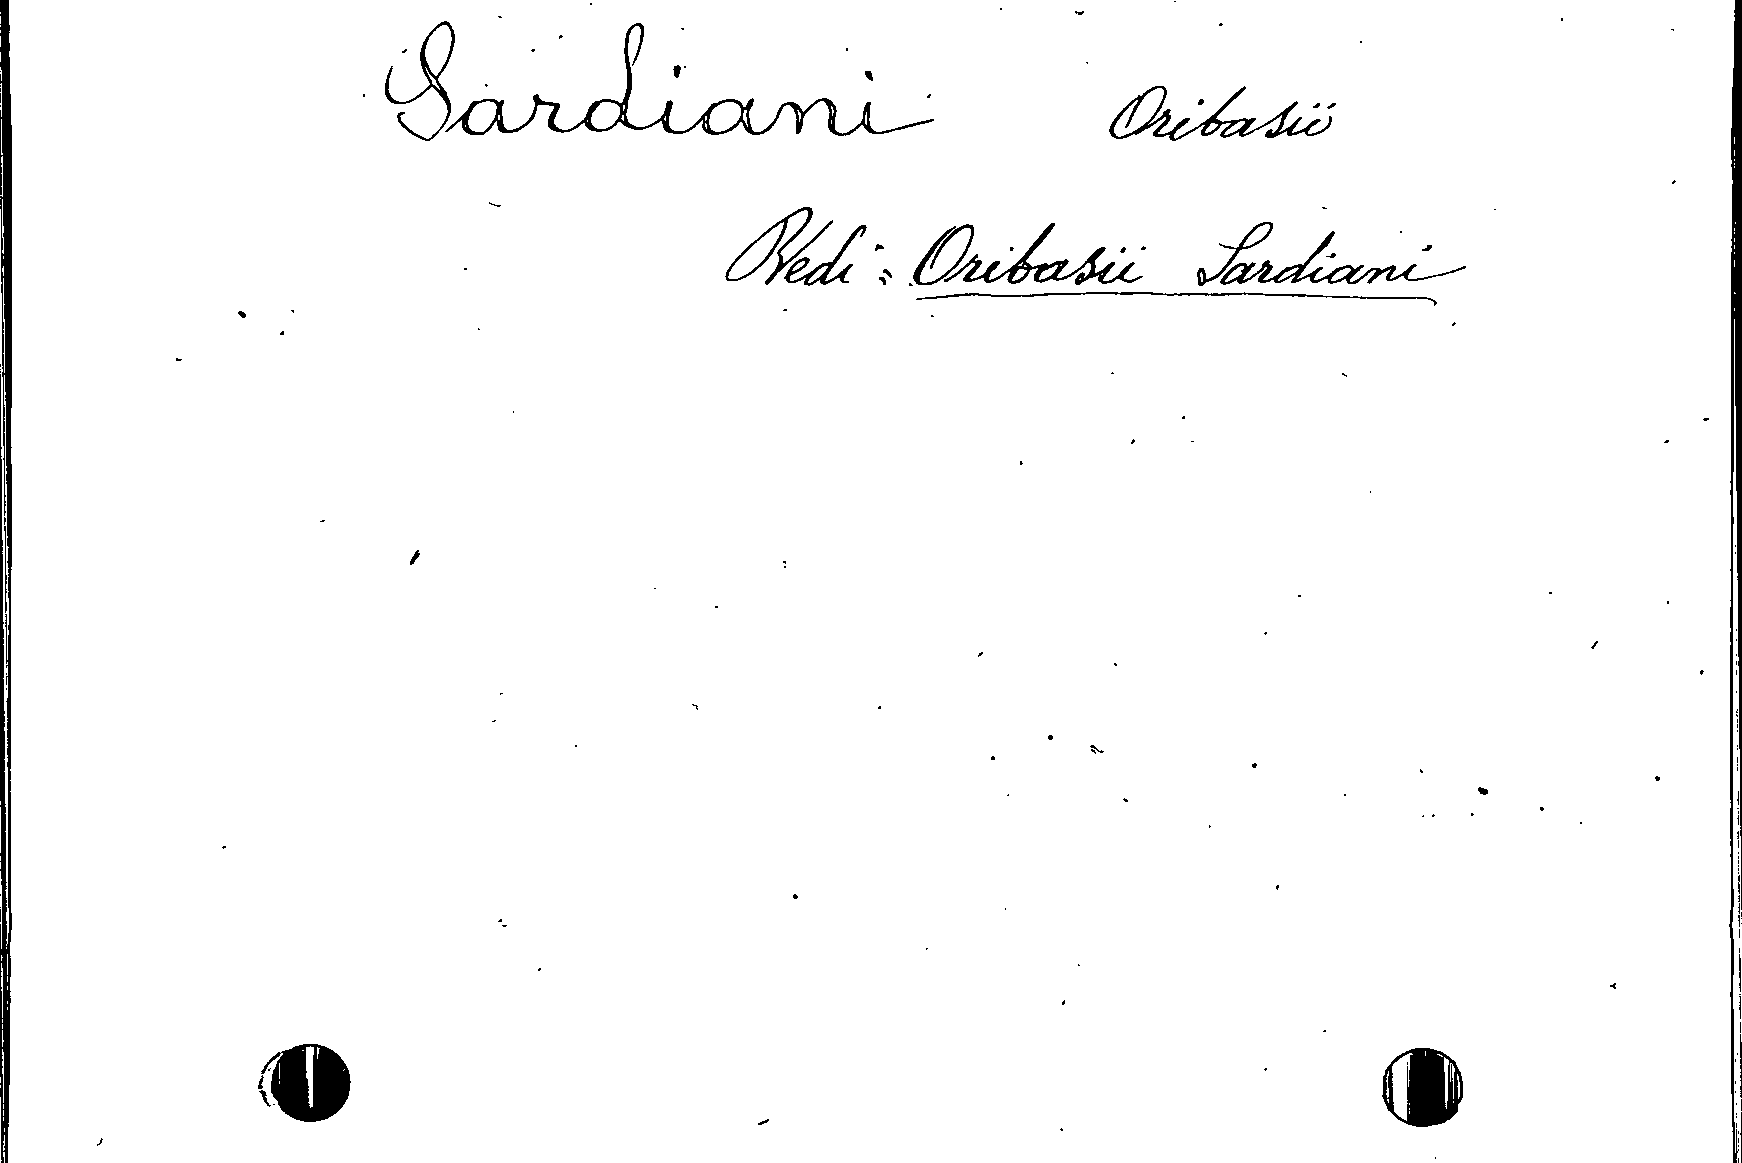 Sardiani Oribasii
Vedi: Oribasii Sardiani